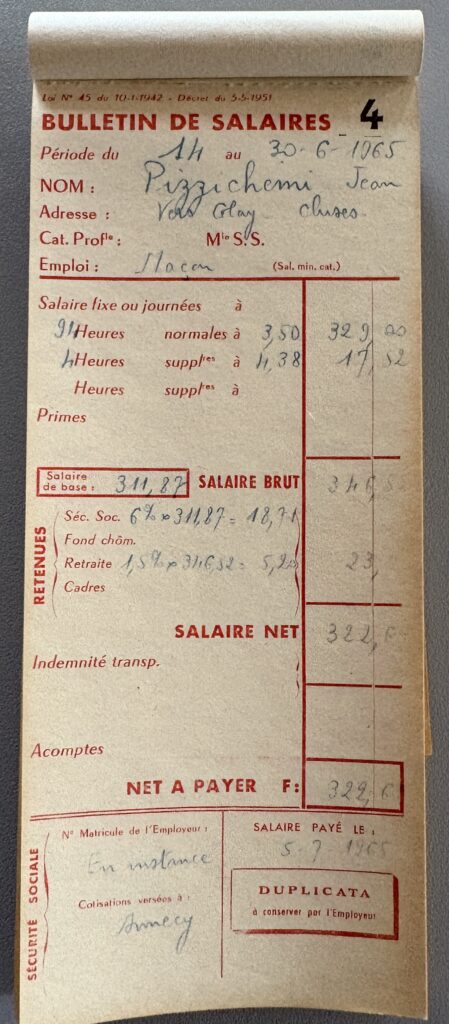 Loi N° 45 du 10-1-1942 - Décret du 5-5-1951
BULLETIN DE SALAIRES 4
Période du 14 au 30-6-1965
NOM : Pizzichemi Jean
Adresse : Vers Glay Cluses
Cat. Profle : Mle S.S.
Emploi : Maçon (Sal. min. cat.)
Salaire fixe ou journées à
94 Heures normales à 3,50 329,00
4 Heures supplres à 4,38 17,52
Heures supplres à
Primes
Salaire de base : 311,87 SALAIRE BRUT 346,5
RETENUES
Séc. Soc. 6% x 311,87 = 18,71
Fond chôm.
Retraite 1,5% x 346,52 = 5,20 23,
Cadres
SALAIRE NET 322,6
Indemnité transp.
Acomptes
NET A PAYER F: 322,6
SÉCURITÉ SOCIALE
N° Matricule de l'Employeur :
En instance
Cotisations versées à :
Annecy
SALAIRE PAYÉ LE :
5-7 1965
DUPLICATA
à conserver par l'Employeur